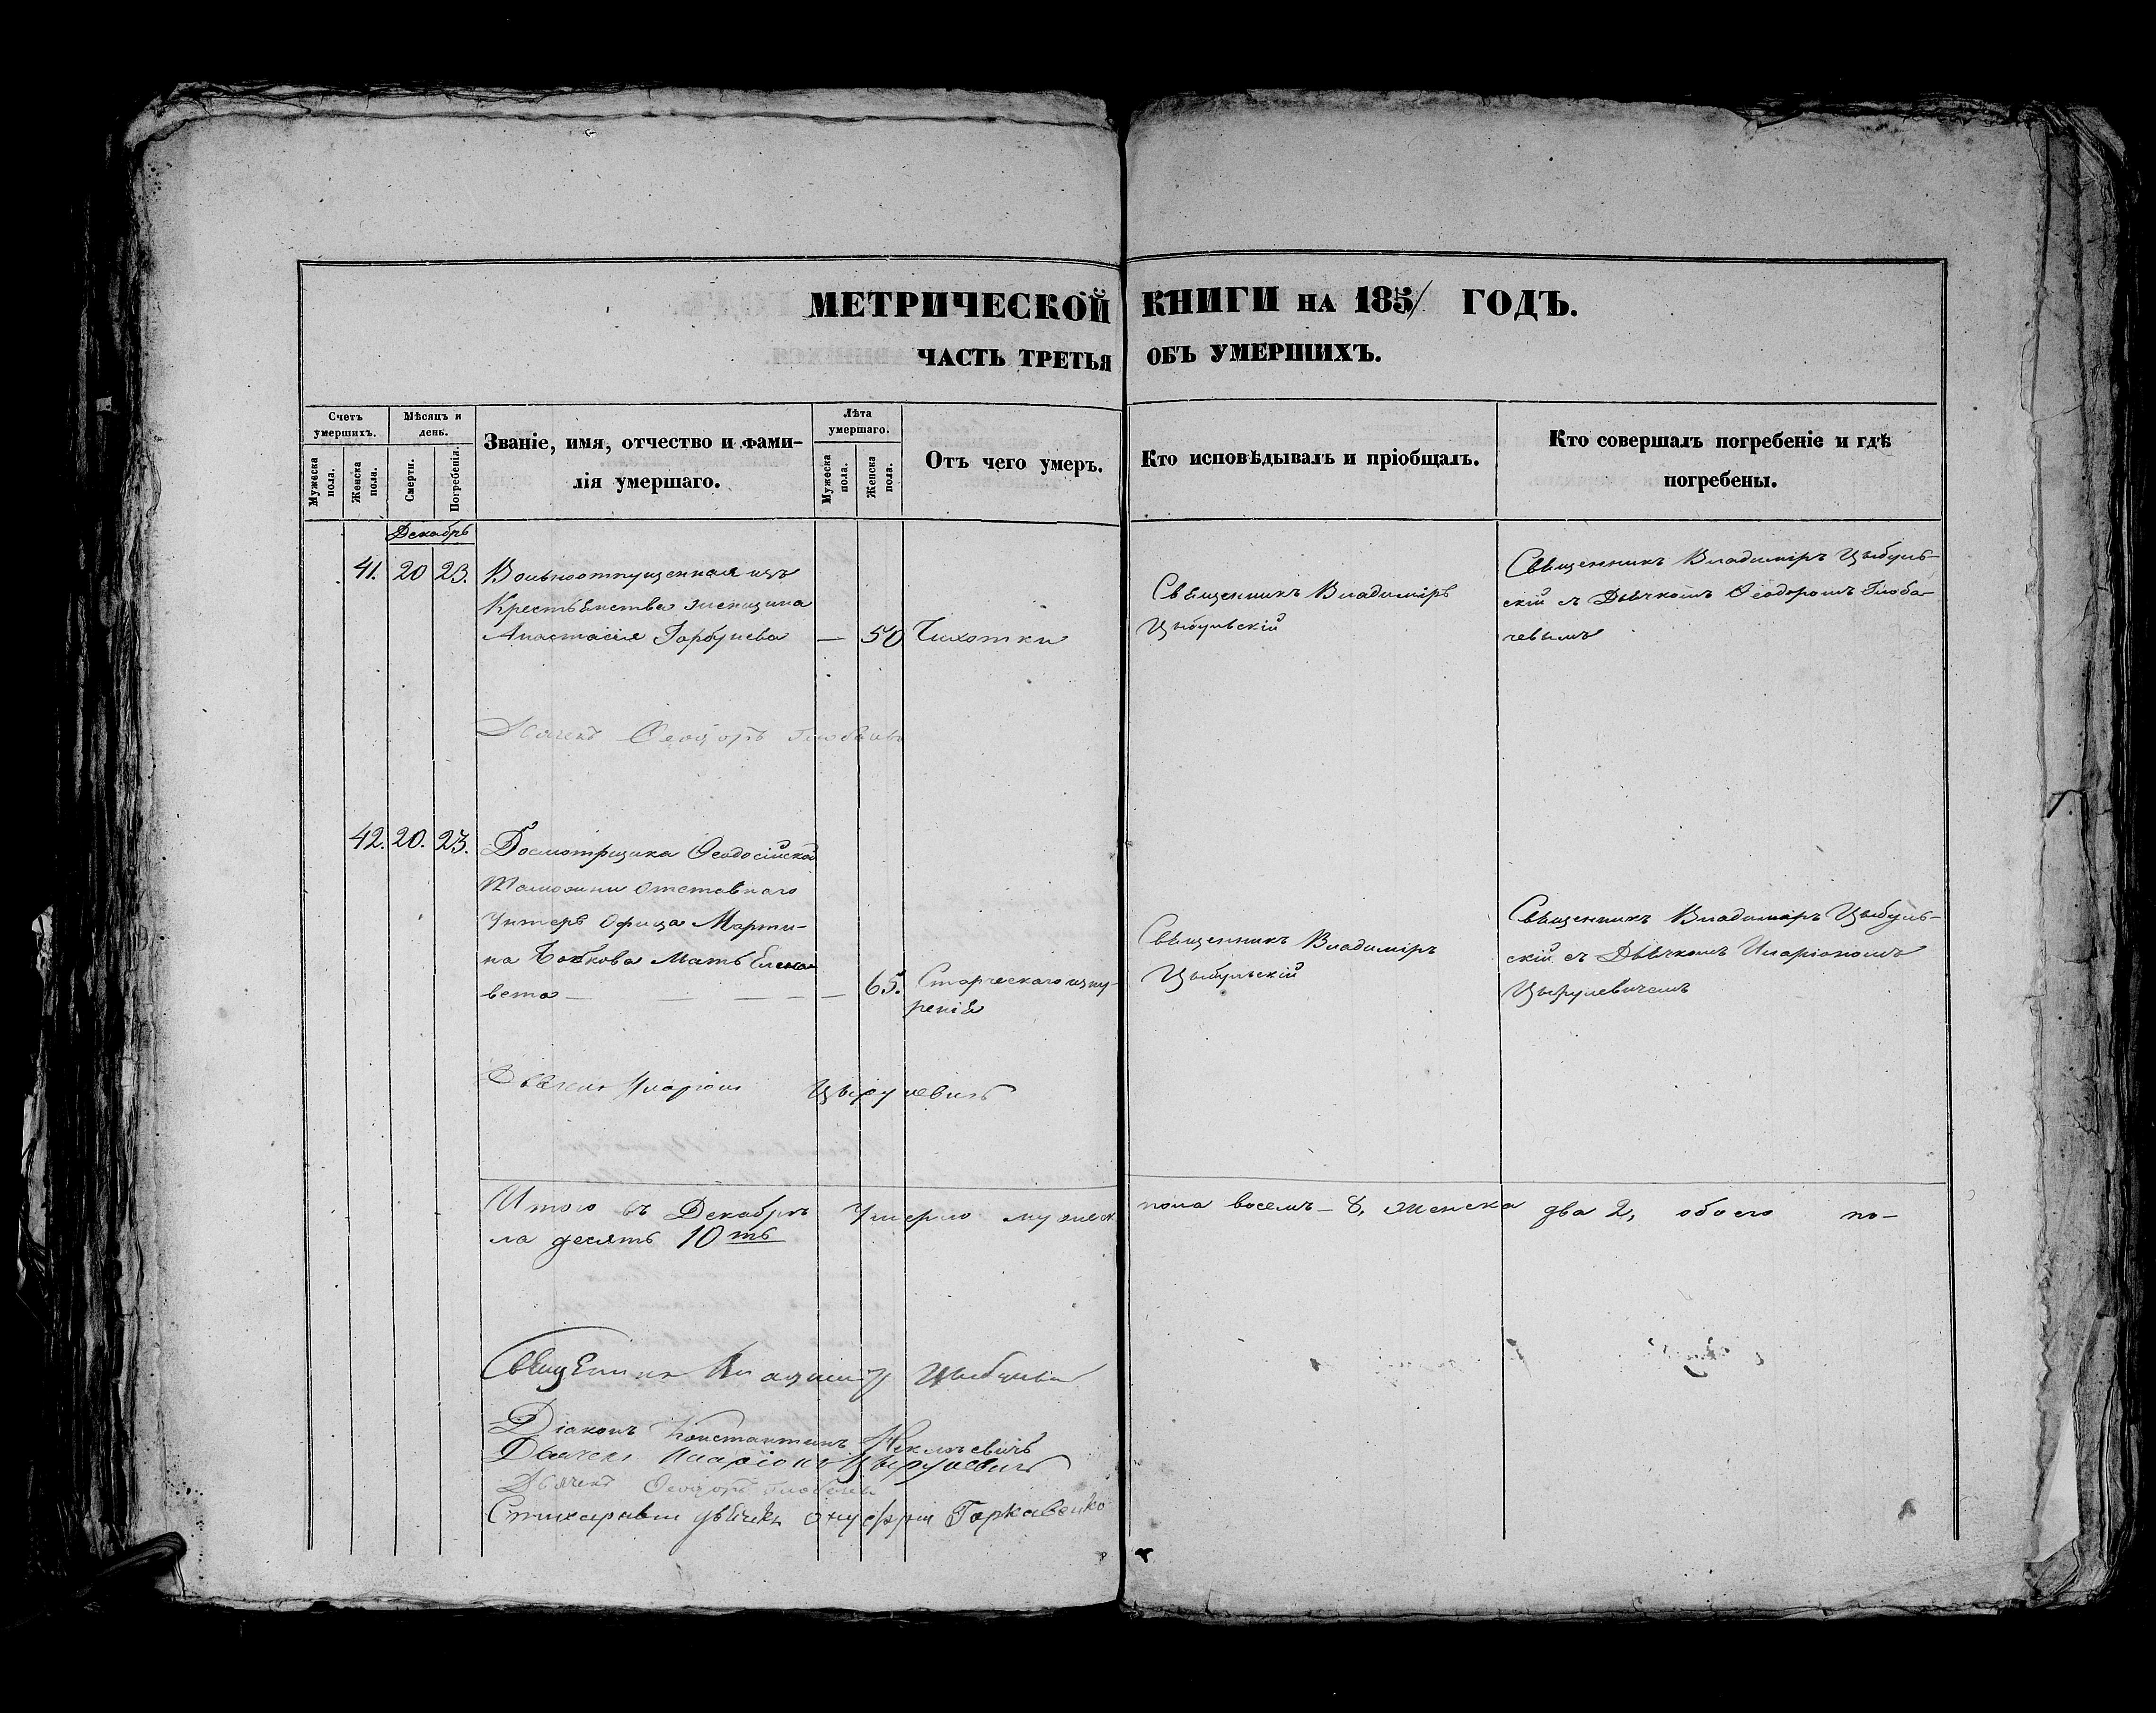 МЕТРИЧЕСКОЙ КНИГИ НА 185/ ГОДЪ.
ЧАСТЬ ТРЕТЬЯ ОБЪ УМЕРШИХЪ.
Счетъ умершихъ.
Мужеска пола.
Женска пола.
Мѣсяцъ и день.
Смерти.
Погребенія.
Званіе, имя, отчество и фами-
лія умершаго.
Лѣта умершаго.
Мужеска пола.
Женска пола.
Отъ чего умеръ.
Кто исповѣдывалъ и пріобщалъ.
Кто совершалъ погребеніе и гдѣ
погребены.
Декабрь
41. 20 23. Вольноотпущенная изъ
Крестьянства женщина
Анастасія Горбунева — 50 Чихотки
Священникъ Владиміръ
Цыбульскій
Священникъ Владиміръ Цыбуль-
скій съ Дьячкомъ Ѳеодоромъ Глоба-
чевымъ
Дьячекъ Ѳеодоръ
42. 20. 23. Досмотрщика Ѳеодосійской
Таможни отставнаго
Унтеръ Офица Марти-
на Бобкова Мать
вета — — — — 65. Старческаго изну-
ренія
Священникъ Владиміръ
Цыбульскій
Священникъ Владиміръ Цыбуль-
скій съ Дьячкомъ Иларіономъ
Цырулевичемъ
Дьячекъ Иларіонъ Цырулевичъ
Итого въ Декабрѣ Умерло мужеск пола восемь – 8, женска два 2, обоего по-
ла десять 10ть
Священникъ Владимиръ Цыбульскій
Діаконъ Константинъ
Дьячекъ Иларіонъ Цырулевичъ
Дьячекъ Ѳеодоръ
дьячекъ Онуфрій Горкавенко